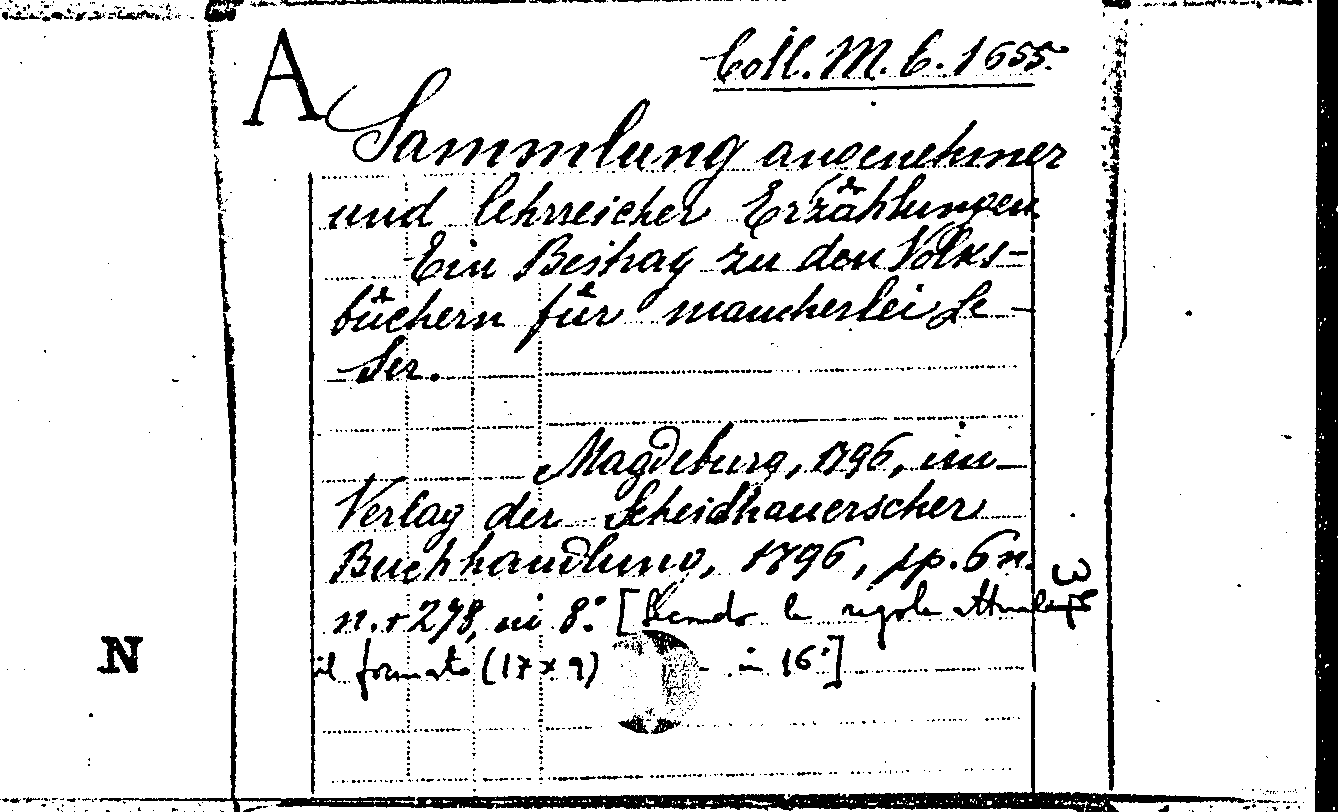 A
Coll. M. E. 1655.
Sammlung angenehmer
und lehrreicher Erzählungen
Ein Beitrag zu den Volks-
büchern für mancherlei Le-
ser.
Magdeburg, 1796, im
Verlag der Scheidhauerscher
Buchhandlung, 1796, pp. 6 n.
n. + 278, in 8.° [ le regole attuali
il formato (17 x 9) in 16°]
N